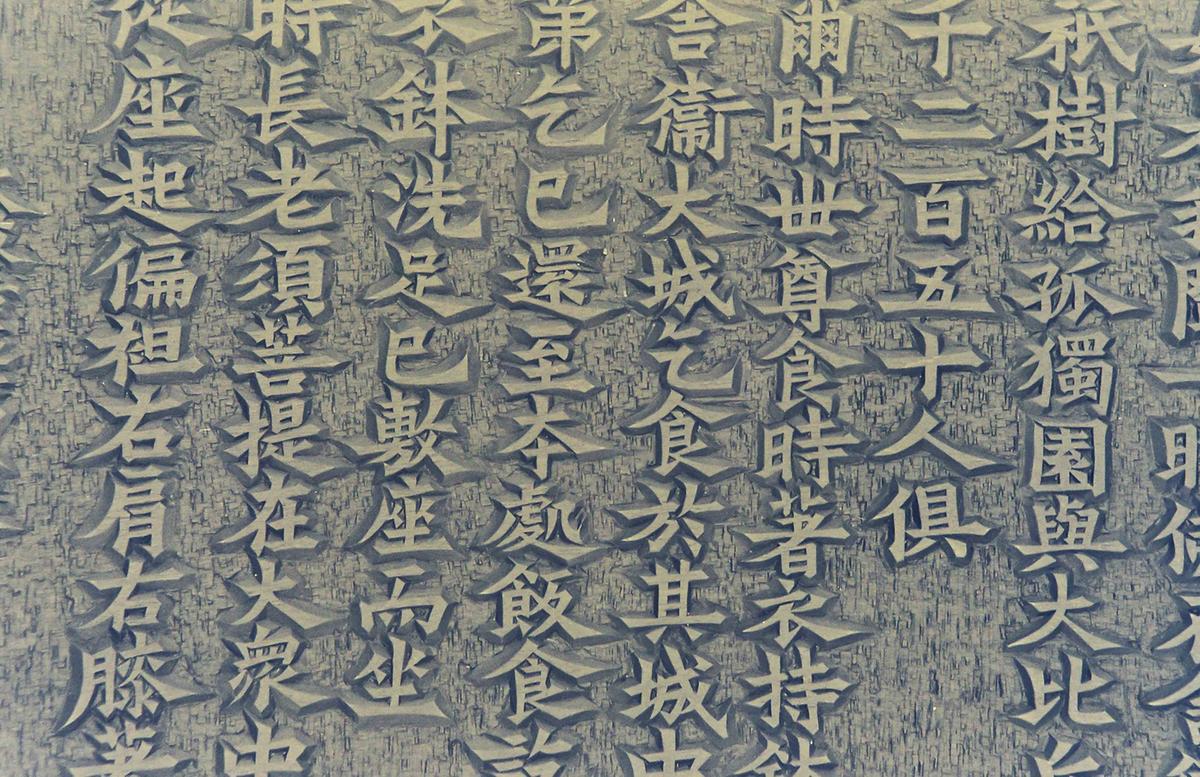 祇樹給孤獨園與大比丘
千二百五十人俱
爾時世尊食時著衣持鉢
舍衞大城乞食於其城中
弟乞已還至本處飯食訖
衣鉢洗足已敷座而坐
時長老須菩提在大衆中
從座起偏袒右肩右膝著